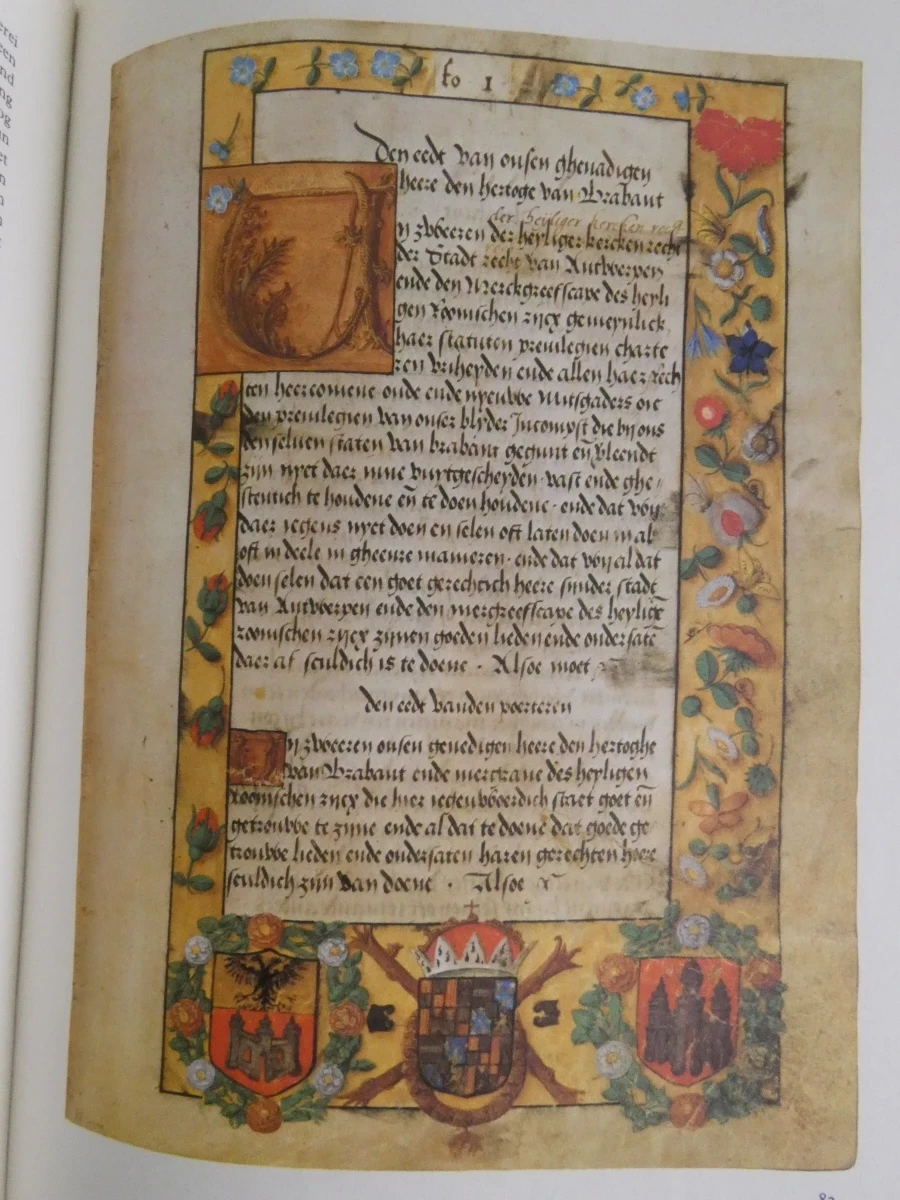 fo 1
Den eedt van onsen ghenadigen
heere den hertoge van Brabant
der heyliger kercken recht
Wy zweeren der heyliger kercken recht
der Stadt recht van Antwerpen
ende den Merckgreefscape des heyli
gen Roomschen rycx gemeynlick
haer statuten previlegien charte
ren vriheyden ende allen haer rech
ten heercomene oude ende nyeuwe Mitsgaders oic
den previlegien van onser blyder Incompst die by ons
den selven staten van brabant gegunt eñ verleendt
zijn nyet daer inne vuytgescheyden vast ende ghe
stentich te houdene eñ te doen houdene ende dat wy
daer iegens nyet doen en selen oft laten doen in al
oft in deele in gheenre manieren ende dat wy al dat
doen selen dat een goet gerechtich heere sijnder stadt
van Antwerpen ende den mergreefscape des heylighe
roomschen rycx zijnen goeden lieden ende ondersatē
daer af sculdich is te doene . Alsoe moet
den eedt vanden poerteren
Wy zweeren onsen genedigen heere den hertoghe
van Brabant ende mergrave des heyligen
Roomschen rycx die hier iegenwoordich staet goet eñ
getrouwe te zijne ende al dat te doene dat goede ge
trouwe lieden ende ondersaten haren gerechten heere
sculdich zijn van doene . Alsoe